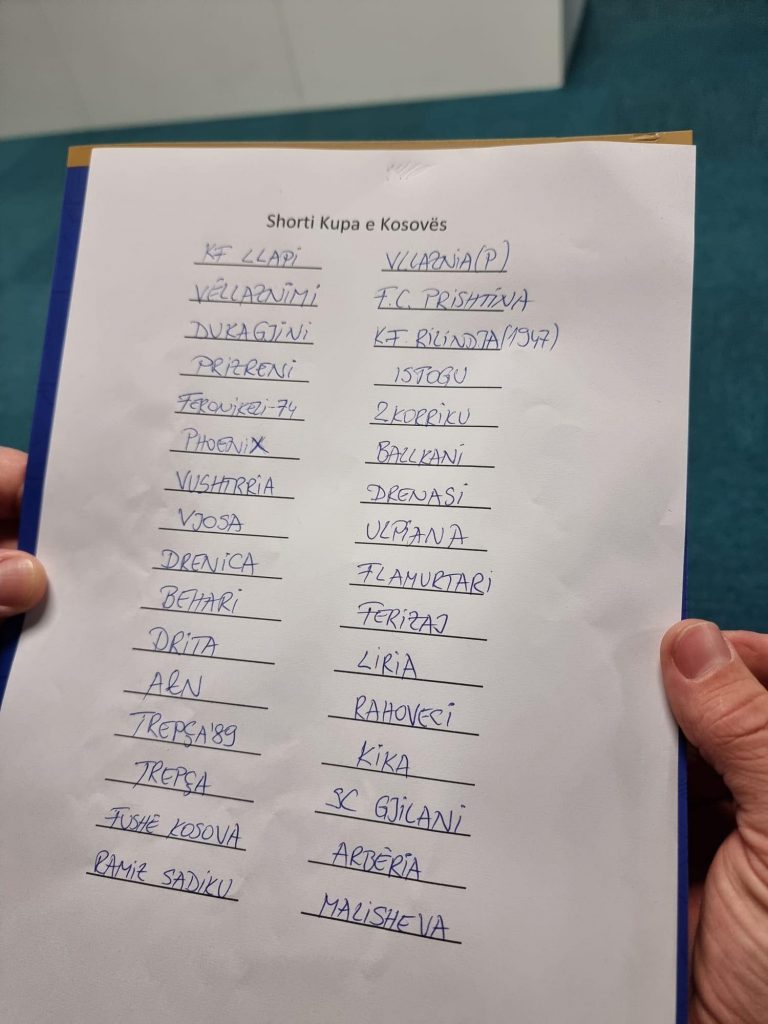 Shorti Kupa e Kosovës
KF LLAPI VLLAZNIA(P)
VËLLAZNIMI F.C. PRISHTINA
DUKAGJINI KF. RILINDJA(1947)
PRIZRENI ISTOGU
FERONIKELI-74 2KORRIKU
PHOENIX BALLKANI
VUSHTRRIA DRENASI
VJOSA ULPIANA
DRENICA FLAMURTARI
BEHARI FERIZAJ
DRITA LIRIA
A&N RAHOVECI
TREPÇA'89 KIKA
TREPÇA SC GJILANI
FUSHË KOSOVA ARBËRIA
RAMIZ SADIKU MALISHEVA